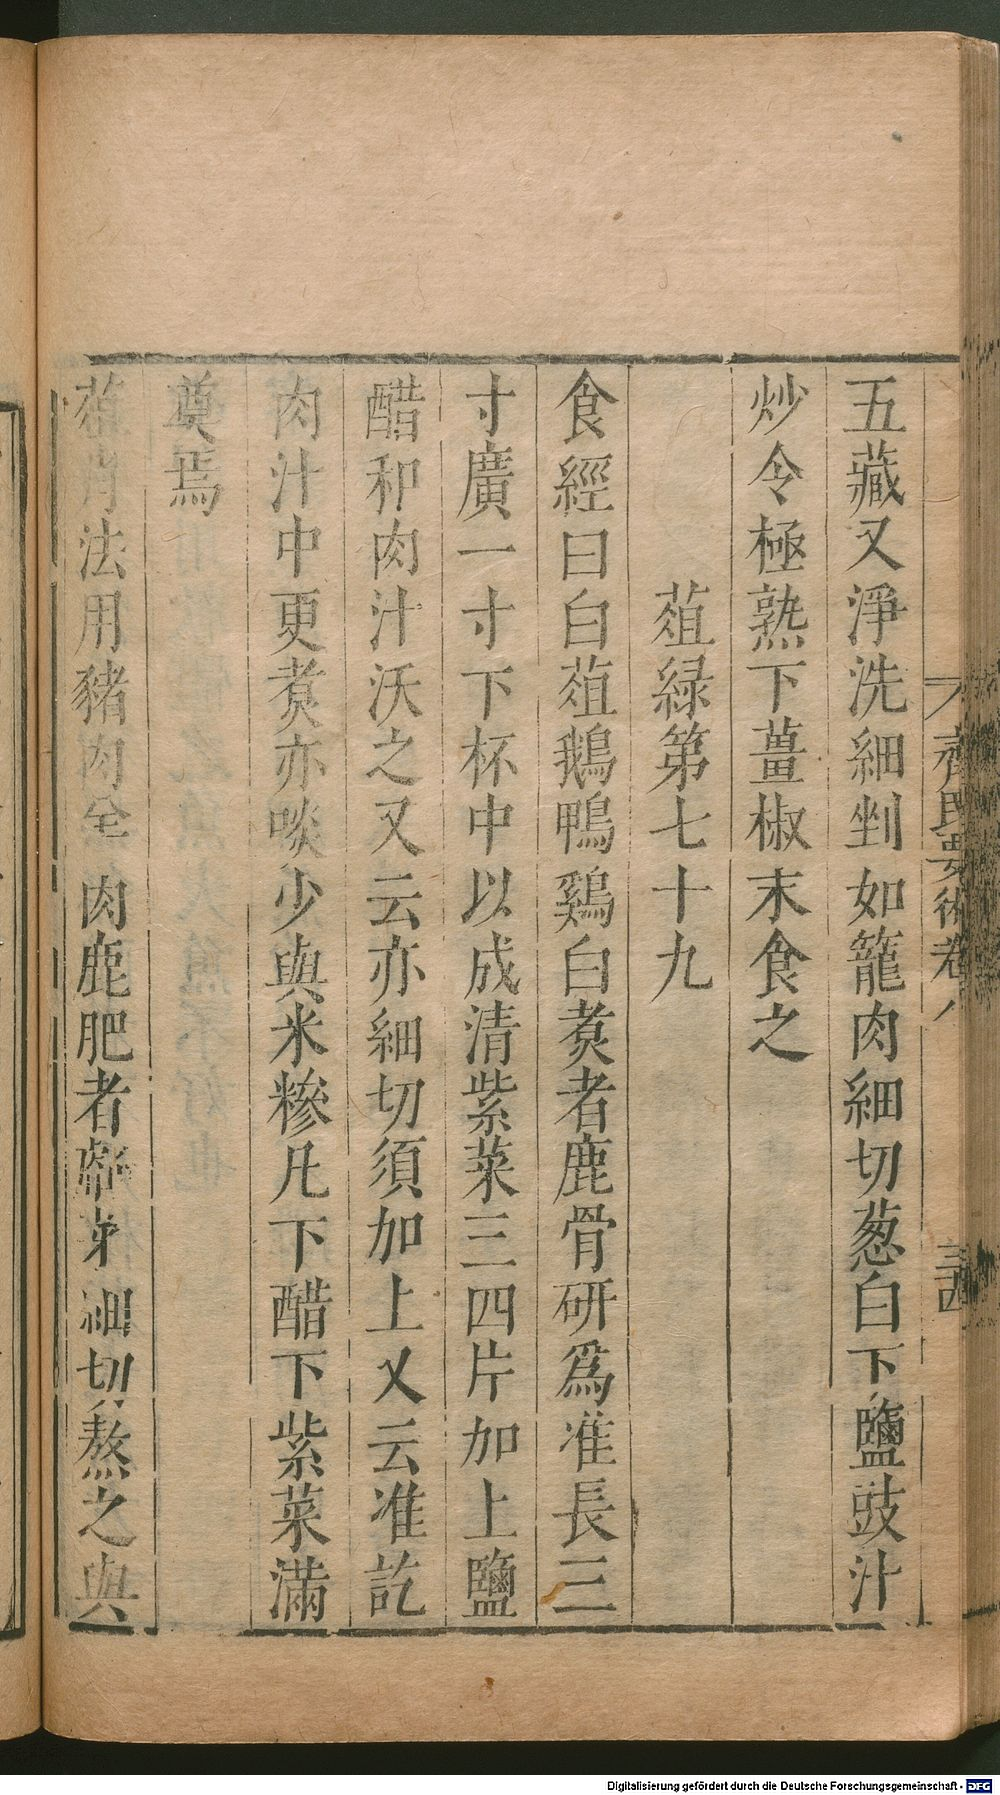 五藏又淨洗細剉如籠肉細切葱白下鹽豉汁
炒令極熟下薑椒末食之
葅緑第七十九
食經曰白葅鵝鴨鷄白煑者鹿骨研爲准長三
寸廣一寸下杯中以成清紫菜三四片加上鹽
醋和肉汁沃之又云亦細切須加上又云准訖
肉汁中更煑亦啖少與米糝凡下醋下紫菜滿
奠焉
葅肖法用豬肉全肉鹿肥者䪥葉細切熬之與
齊民要術卷八
三四
Digitalisierung gefördert durch die Deutsche Forschungsgemeinschaft - DFG